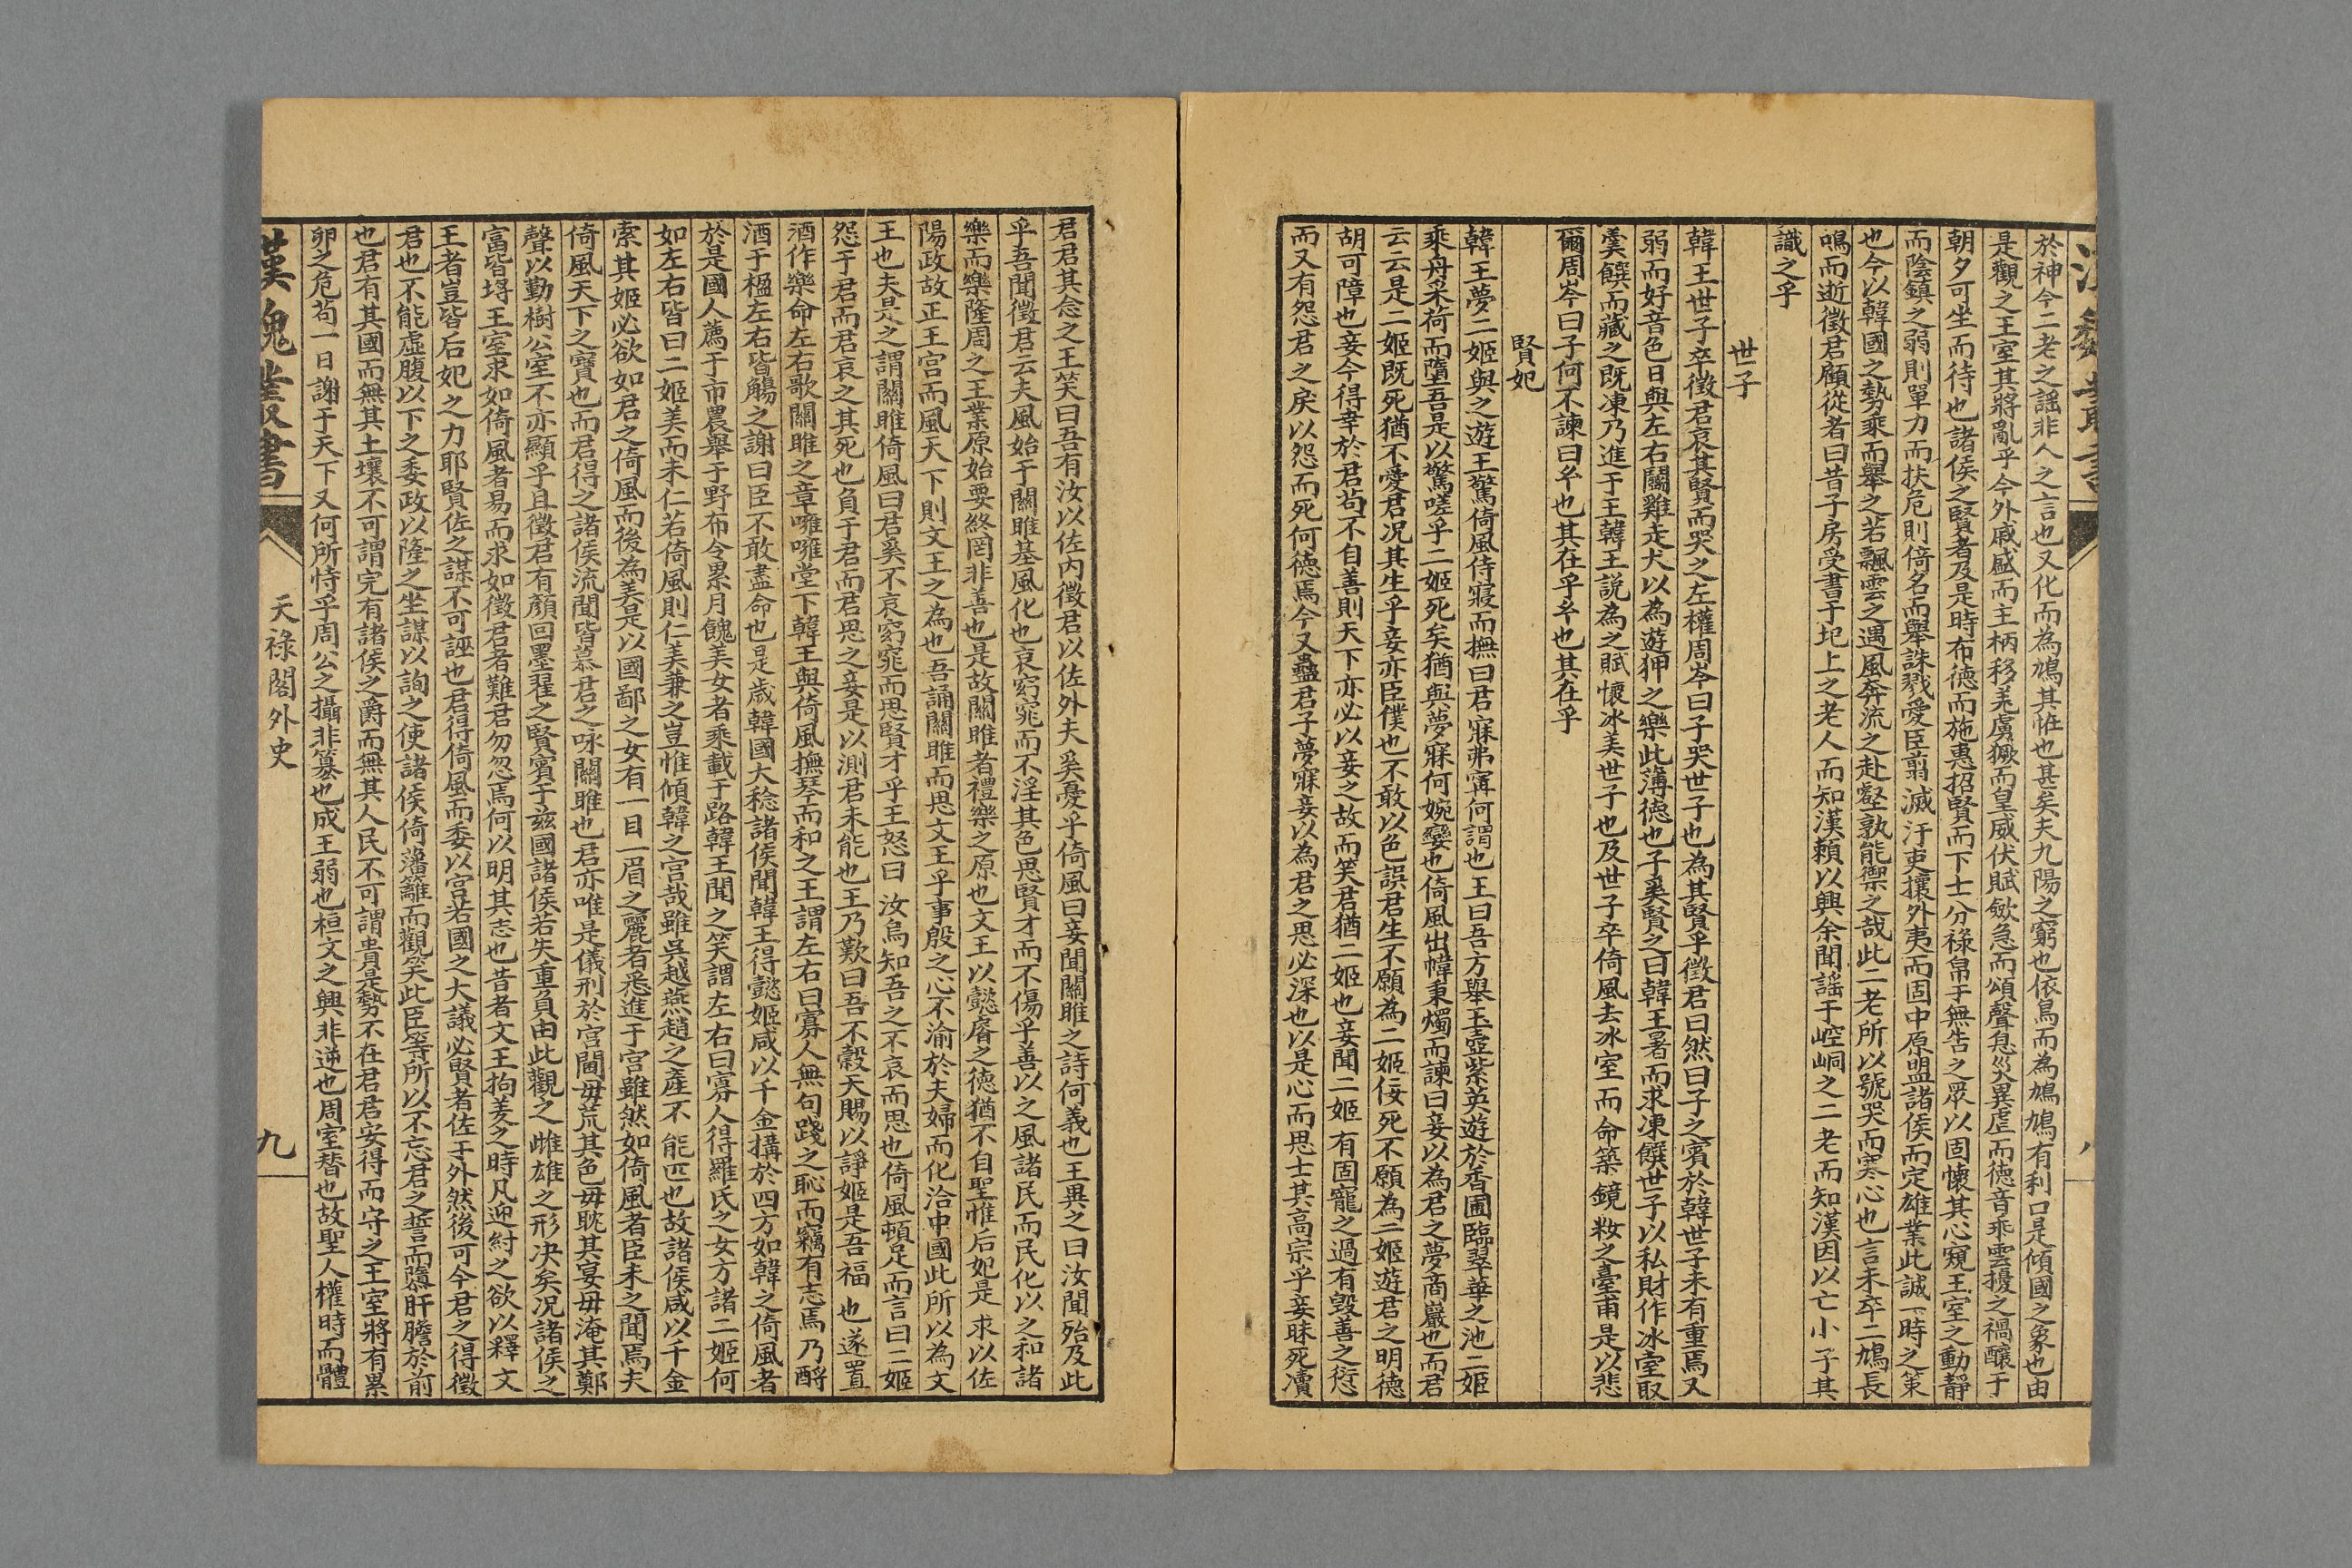 漢魏叢書
八
於神今二老之謡非人之言也又化而為鳩其恠也甚矣夫九陽之窮也依鳥而為鳩鳩有利口是傾國之象也由
是觀之王室其將亂乎今外戚盛而主柄移羌虜獗而皇威伏賦歛急而頌聲息災異虐而德音乖雲擾之禍釀于
朝夕可坐而待也諸侯之賢者及是時布德而施惠招賢而下士分祿帛于無告之眾以固懷其心窺王室之動靜
而陰鎮之弱則單力而扶危則倚名而舉誅戮愛臣翦滅汙吏攘外夷而固中原盟諸侯而定雄業此誠一時之策
也今以韓國之勢乘而舉之若飄雲之遇風奔流之赴壑孰能禦之哉此二老所以號哭而寒心也言未卒二鳩長
鳴而逝徵君顧從者曰昔子房受書于圯上之老人而知漢賴以興余聞謡于崆峒之二老而知漢因以亡小子其
識之乎
世子
韓王世子卒徵君哀其賢而哭之左權周岑曰子哭世子也為其賢乎徵君曰然曰子之賓於韓世子未有重焉又
弱而好音色日與左右鬭雞走犬以為遊狎之樂此薄德也子奚賢之曰韓王暑而求凍饌世子以私財作冰室取
羹饌而藏之既凍乃進于王韓王説為之賦懷冰美世子也及世子卒倚風去冰室而命築鏡粧之臺甫是以悲
爾周岑曰子何不諫曰兮也其在乎兮也其在乎
賢妃
韓王夢二姬與之遊王驚倚風侍寢而撫曰君寐弗寗何謂也王曰吾方舉玉壺紫英遊於香圃臨翠華之池二姬
乘舟采荷而墮吾是以驚嗟乎二姬死矣猶與夢寐何婉孌也倚風出幃秉燭而諫曰妾以為君之夢商巖也而君
云云是二姬既死猶不愛君况其生乎妾亦臣僕也不敢以色誤君生不願為二姬佞死不願為二姬遊君之明德
胡可障也妾今得幸於君苟不自善則天下亦必以妾之故而笑君猶二姬也妾聞二姬有固寵之過有毀善之愆
而又有怨君之戾以怨而死何德焉今又蠱君子夢寐妾以為君之思必深也以是心而思士其高宗乎妾昧死瀆
君君其念之王笑曰吾有汝以佐内徵君以佐外夫奚憂乎倚風曰妾聞關雎之詩何義也王異之曰汝聞殆及此
乎吾聞徵君云夫風始于關雎基風化也哀窈窕而不淫其色思賢才而不傷乎善以之風諸民而民化以之和諸
樂而樂隆周之王業原始要終罔非善也是故關雎者禮樂之原也文王以懿睿之德猶不自聖惟后妃是求以佐
陽政故正王宫而風天下則文王之為也吾誦關雎而思文王乎事殷之心不渝於夫婦而化洽中國此所以為文
王也夫是之謂關雎倚風曰君奚不哀窈窕而思賢才乎王怒曰汝烏知吾之不哀而思也倚風頓足而言曰二姬
怨于君而君哀之其死也負于君而君思之妾是以測君未能也王乃歎曰吾不穀天賜以諍姬是吾福也遂置
酒作樂命左右歌關雎之章噰噰堂下韓王與倚風撫琴而和之王謂左右曰寡人無句踐之恥而竊有志焉乃酹
酒于楹左右皆觴之謝曰臣不敢盡命也是歲韓國大稔諸侯聞韓王得懿姬咸以千金搆於四方如韓之倚風者
於是國人薦于市農舉于野布令累月餽美女者乘載于路韓王聞之笑謂左右曰寡人得羅氏之女方諸二姬何
如左右皆曰二姬美而未仁若倚風則仁美兼之豈惟傾韓之宫哉雖吳越燕趙之產不能匹也故諸侯咸以千金
索其姬必欲如君之倚風而後為美是以國鄙之女有一目一眉之麗者悉進于宫雖然如倚風者臣未之聞焉夫
倚風天下之寶也而君得之諸侯流聞皆慕君之咏關雎也君亦唯是儀刑於宫閫毋荒其色毋耽其宴毋淹其鄭
聲以勤樹公室不亦顯乎且徵君有顔回墨翟之賢賓于兹國諸侯若失重負由此觀之雌雄之形决矣况諸侯之
富皆埒王室求如倚風者易而求如徵君者難君勿忽焉何以明其志也昔者文王拘羑之時凡迎紂之欲以釋文
王者豈皆后妃之力耶賢佐之謀不可誣也君得倚風而委以宫若國之大議必賢者佐于外然後可今君之得徵
君也不能虛腹以下之委政以隆之坐謀以詢之使諸侯倚藩籬而觀笑此臣等所以不忘君之誓而隳肝膽於前
也君有其國而無其土壤不可謂完有諸侯之爵而無其人民不可謂貴是勢不在君君安得而守之王室將有累
卵之危苟一日謝于天下又何所恃乎周公之攝非簒也成王弱也桓文之興非逆也周室替也故聖人權時而體
漢魏叢書
天祿閣外史
九